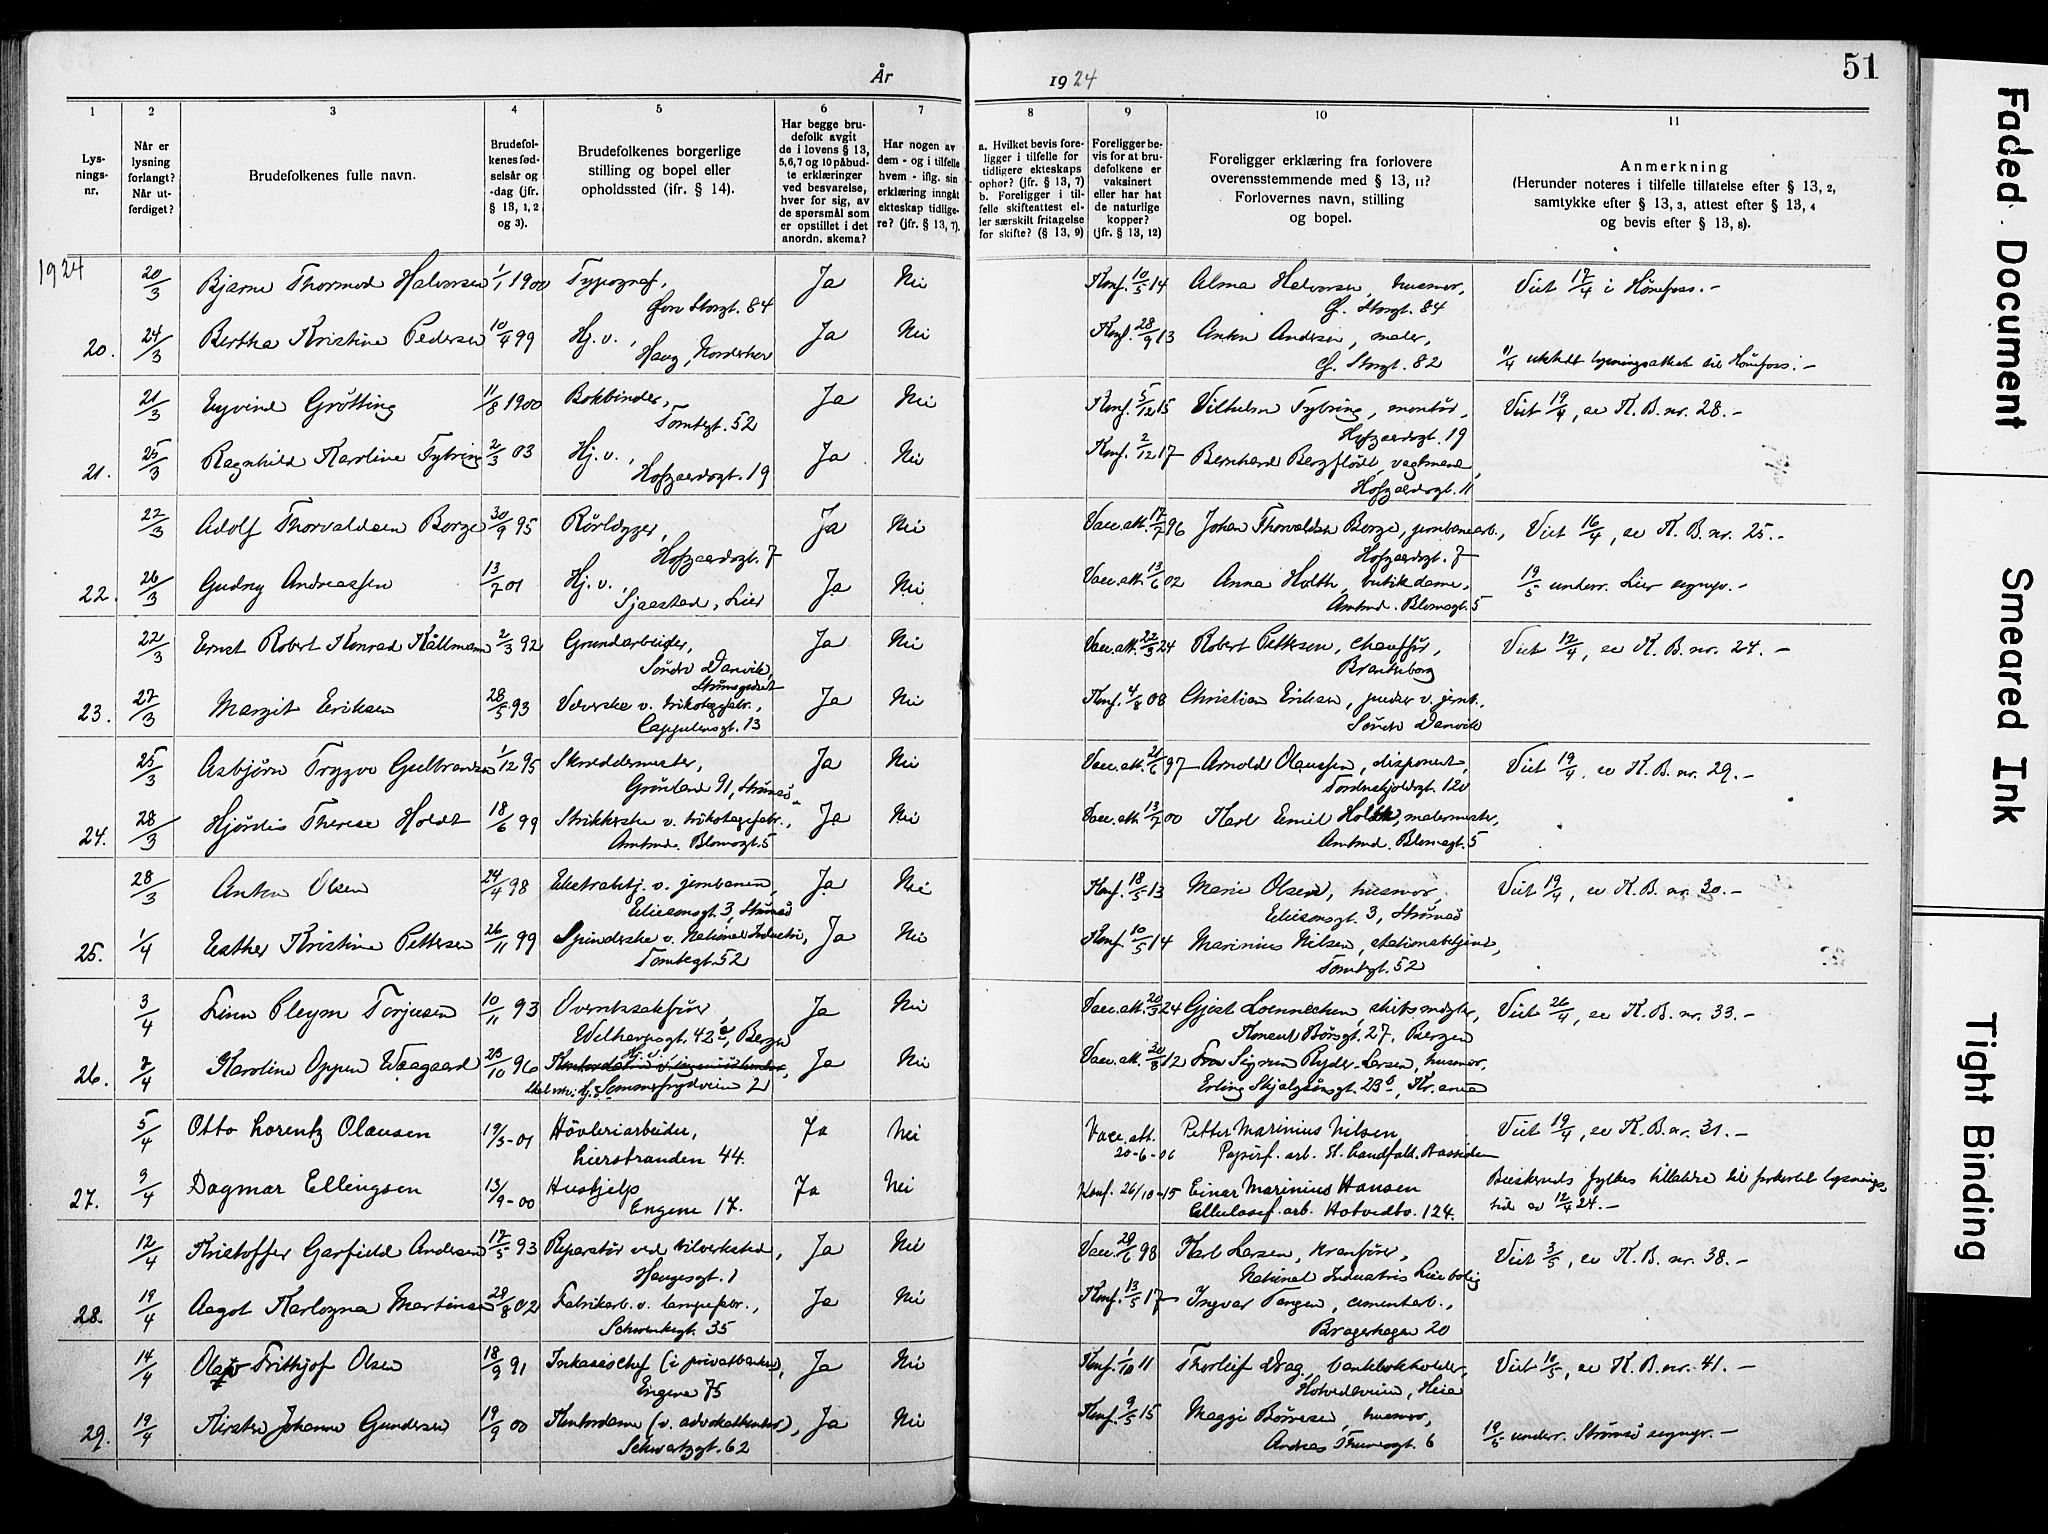 År 1924
51
1 2 3 4 5 6 7 8 9 10 11
Lys-
nings-
nr.
Når er
lysning
forlangt?
Når ut-
ferdiget?
Brudefolkenes fulle navn.
Brudefol-
kenes fød-
selsår og
-dag (jfr.
§ 13, 1, 2
og 3).
Brudefolkenes borgerlige
stilling og bopel eller
opholdssted (jfr. § 14).
Har begge bru-
defolk avgit
de i lovens § 13,
5,6,7 og 10 påbud-
te erklæringer
ved besvarelse,
hver for sig, av
de spørsmål som
er opstillet i det
anordn. skema?
Har nogen av
dem - og i tilfelle
hvem - iflg. sin
erklæring inngåt
ekteskap tidlige-
re? (jfr. § 13, 7).
a. Hvilket bevis fore-
ligger i tilfelle for
tidligere ekteskaps
ophør? (jfr. § 13, 7)
b. Foreligger i til-
felle skifteattest el-
ler særskilt fritagelse
for skifte? (§ 13, 9)
Foreligger be-
vis for at bru-
defolkene er
vaksinert
eller har hat
de naturlige
kopper?
(jfr. § 13, 12)
Foreligger erklæring fra forlovere
overensstemmende med § 13, 11?
Forlovernes navn, stilling
og bopel.
Anmerkning
(Herunder noteres i tilfelle tillatelse efter § 13, 2,
samtykke efter § 13, 3, attest efter § 13, 4
og bevis efter § 13, 8).
1924
20/3 Bjarne Thormod Halvorsen 1/1 1900 Typograf, Ja Nei Konf. 10/5 14 Alma Halvorsen, husmor, Viet 17/4 i Hønefoss. -
Øvre Storgt. 84 Ø. Storgt. 84
20. 24/3 Bertha Kristine Pedersen 10/4 99 Hj. v., Ja Nei Konf. 28/9 13 Anton Andersen, maler,
Haug, Norderhov Ø. Storgt. 82 11/4 utstedt lysningsattest til Hønefoss. -
21/3 Eyvind Grøtting 11/8 1900 Bokbinder, Ja Nei Konf. 5/12 15 Vilhelm Tybring, montør, Viet 19/4, se K. B. nr. 28. -
Tomtegt. 52 Hofgaardsgt. 19
21. 25/3 Ragnhild Karoline Tybring 2/3 03 Hj. v., Ja Nei Konf. 2/12 17 Bernhard Bergflødt, vagtmand,
Hofgaardsgt. 19 Hofgaardsgt. 11
22/3 Adolf Thorvaldsen Borge 30/9 95 Rørlægger, Ja Nei Vacc. att. 17/7 96 Johan Thorvaldsen Borge, jernbanearb., Viet 16/4, se K. B. nr. 25. -
Hofgaardsgt. 7 Hofgaardsgt. 7
22. 26/3 Gudny Andreassen 13/7 01 Hj. v., Ja Nei Vacc. att. 13/6 02 Anna Holth, butikdame, 19/5 underr. Lier sognepr. -
Sjaastad, Lier Amtmd. Blomsgt. 5
22/3 Ernst Robert Konrad Källmann 2/3 92 Grundarbeider, Ja Nei Vacc. att. 22/3 24 Robert Pettersen, chauffør, Viet 12/4, se K. B. nr. 24. -
Søndre Danvik, Brantenborg
Strømsgodset
23. 27/3 Margit Eriksen 28/5 93 Væverske v. trikotagefabr., Ja Nei Konf. 4/8 08 Christian Eriksen, pudser v. jernb.,
Cappelensgt. 13 Søndre Danvik
25/3 Asbjørn Trygve Gulbrandsen 1/12 95 Skreddermester, Ja Nei Vacc. att. 21/6 97 Arnold Olaussen, disponent, Viet 19/4, se K. B. nr. 29. -
Grønland 91, Strømsø Tordenskjoldsgt. 120
24. 28/3 Hjørdis Therese Holdt 18/6 99 Strikkerske v. trikotagefabr., Ja Nei Vacc. att. 13/7 00 Karl Emil Holth, malermester,
Amtmd. Blomsgt. 5 Amtmd. Blomsgt. 5
28/3 Anton Olsen 24/4 98 Ekstrabetj. v. jernbanen, Ja Nei Konf. 18/5 13 Marie Olsen, husmor, Viet 19/4, se K. B. nr. 30. -
Eiliesonsgt. 3, Strømsø Eiliesonsgt. 3, Strømsø
25. 1/4 Esther Kristine Pettersen 26/11 99 Spinderske v. National Industri, Ja Nei Konf. 10/5 14 Marinius Nilsen, stationsbetjent,
Tomtegt. 52 Tomtegt. 52
3/4 Finn Pleym Torjusen 10/11 93 Overretssakfører Ja Nei Vacc. att. 20/3 24 Gjert Loennechen, skibsmægler, Viet 26/4, se K. B. nr. 33. -
Welhavensgt. 42 a, Bergen Konsul Børsgt. 27, Bergen
26. 7/4 Karoline Oppen Waagaard 23/10 96 Ja Nei Vacc. att. 30/8 12 Fru Sigrun Ryder-Larsen, husmor,
Sommerfrydveien 2 Erling Skjalgsønsgt. 23 b, Kr.ania
5/4 Otto Lorentz Olausen 19/3-01 Høvleriarbeider, Ja Nei Vacc. att. Petter Marinius Nilsen Viet 19/4, se K. B. nr. 31. -
Lierstranden 44. 20-6-06 Papirf. arb. St. Landfald. Aassiden
27. 9/4 Dagmar Ellingsen 13/9-00 Hushjelp Ja Nei Konf. 26/10-15 Einar Marinius Hansen Buskeruds fylkes tillatelse til forkortet lysnings-
Engene 17. Cellulosef. arb. Hotvedtv. 124. tid av 12/4 24. -
12/4 Kristoffer Garfield Andersen 17/5 93 Reparatør ved bilverksted, Ja Nei Vacc. 29/6 98 Karl Larsen, kranfører, Viet 3/5, se K. B. nr. 38. -
Haugesgt. 1 National Industris Leiebolig
28. 19/4 Aagot Karlozna Martinsen 28/8 02 Fabrikarb. v. lampefabr., Ja Nei Konf. 13/5 17 Ingvar Tangen, cementarb.,
Schwenkegt. 35 Bragerhagen 20
14/4 Olaf Frithjof Olsen 18/9 91 Inkassochef (i privatbanken), Ja Nei Konf. 1/10 11 Thorleif Drag, bankbokholder, Viet 10/5, se K. B. nr. 41. -
Engene 75 Hotvedtveien, Heia
29. 19/4 Kirsten Johanne Gundersen 19/9 00 Kontordame (v. advokatkontor), Ja Nei Konf. 9/5 15 Maggi Børresen, husmor, 19/5 underr. Strømsø sognepr. -
Schwartzgt. 62 Andreas Thunesgt. 6
Faded Document
Smeared Ink
Tight Binding